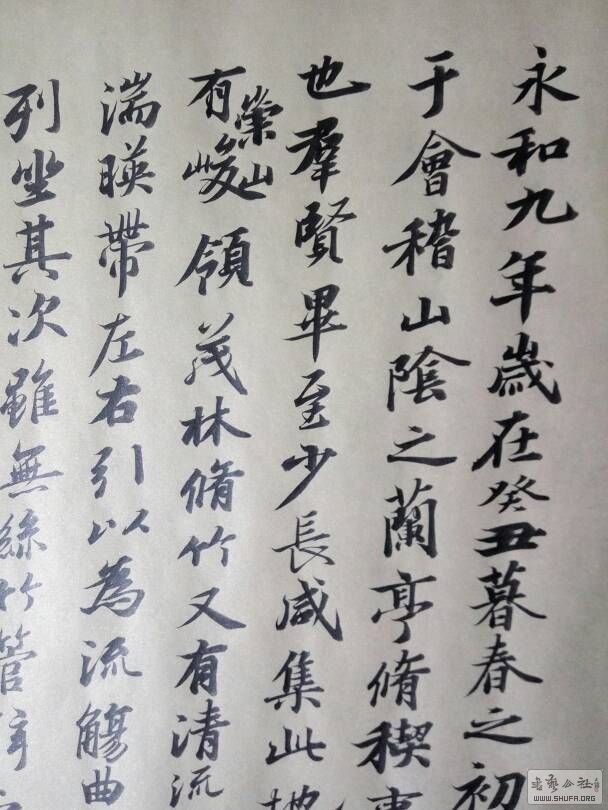 永和九年歲在癸丑暮春之初
于會稽山陰之蘭亭脩稧事
也羣賢畢至少長咸集此地
有崇山峻領茂林脩竹又有清流
湍暎帶左右引以為流觴曲
列坐其次雖無絲竹管
书艺公社
WWW.SHUFA.ORG